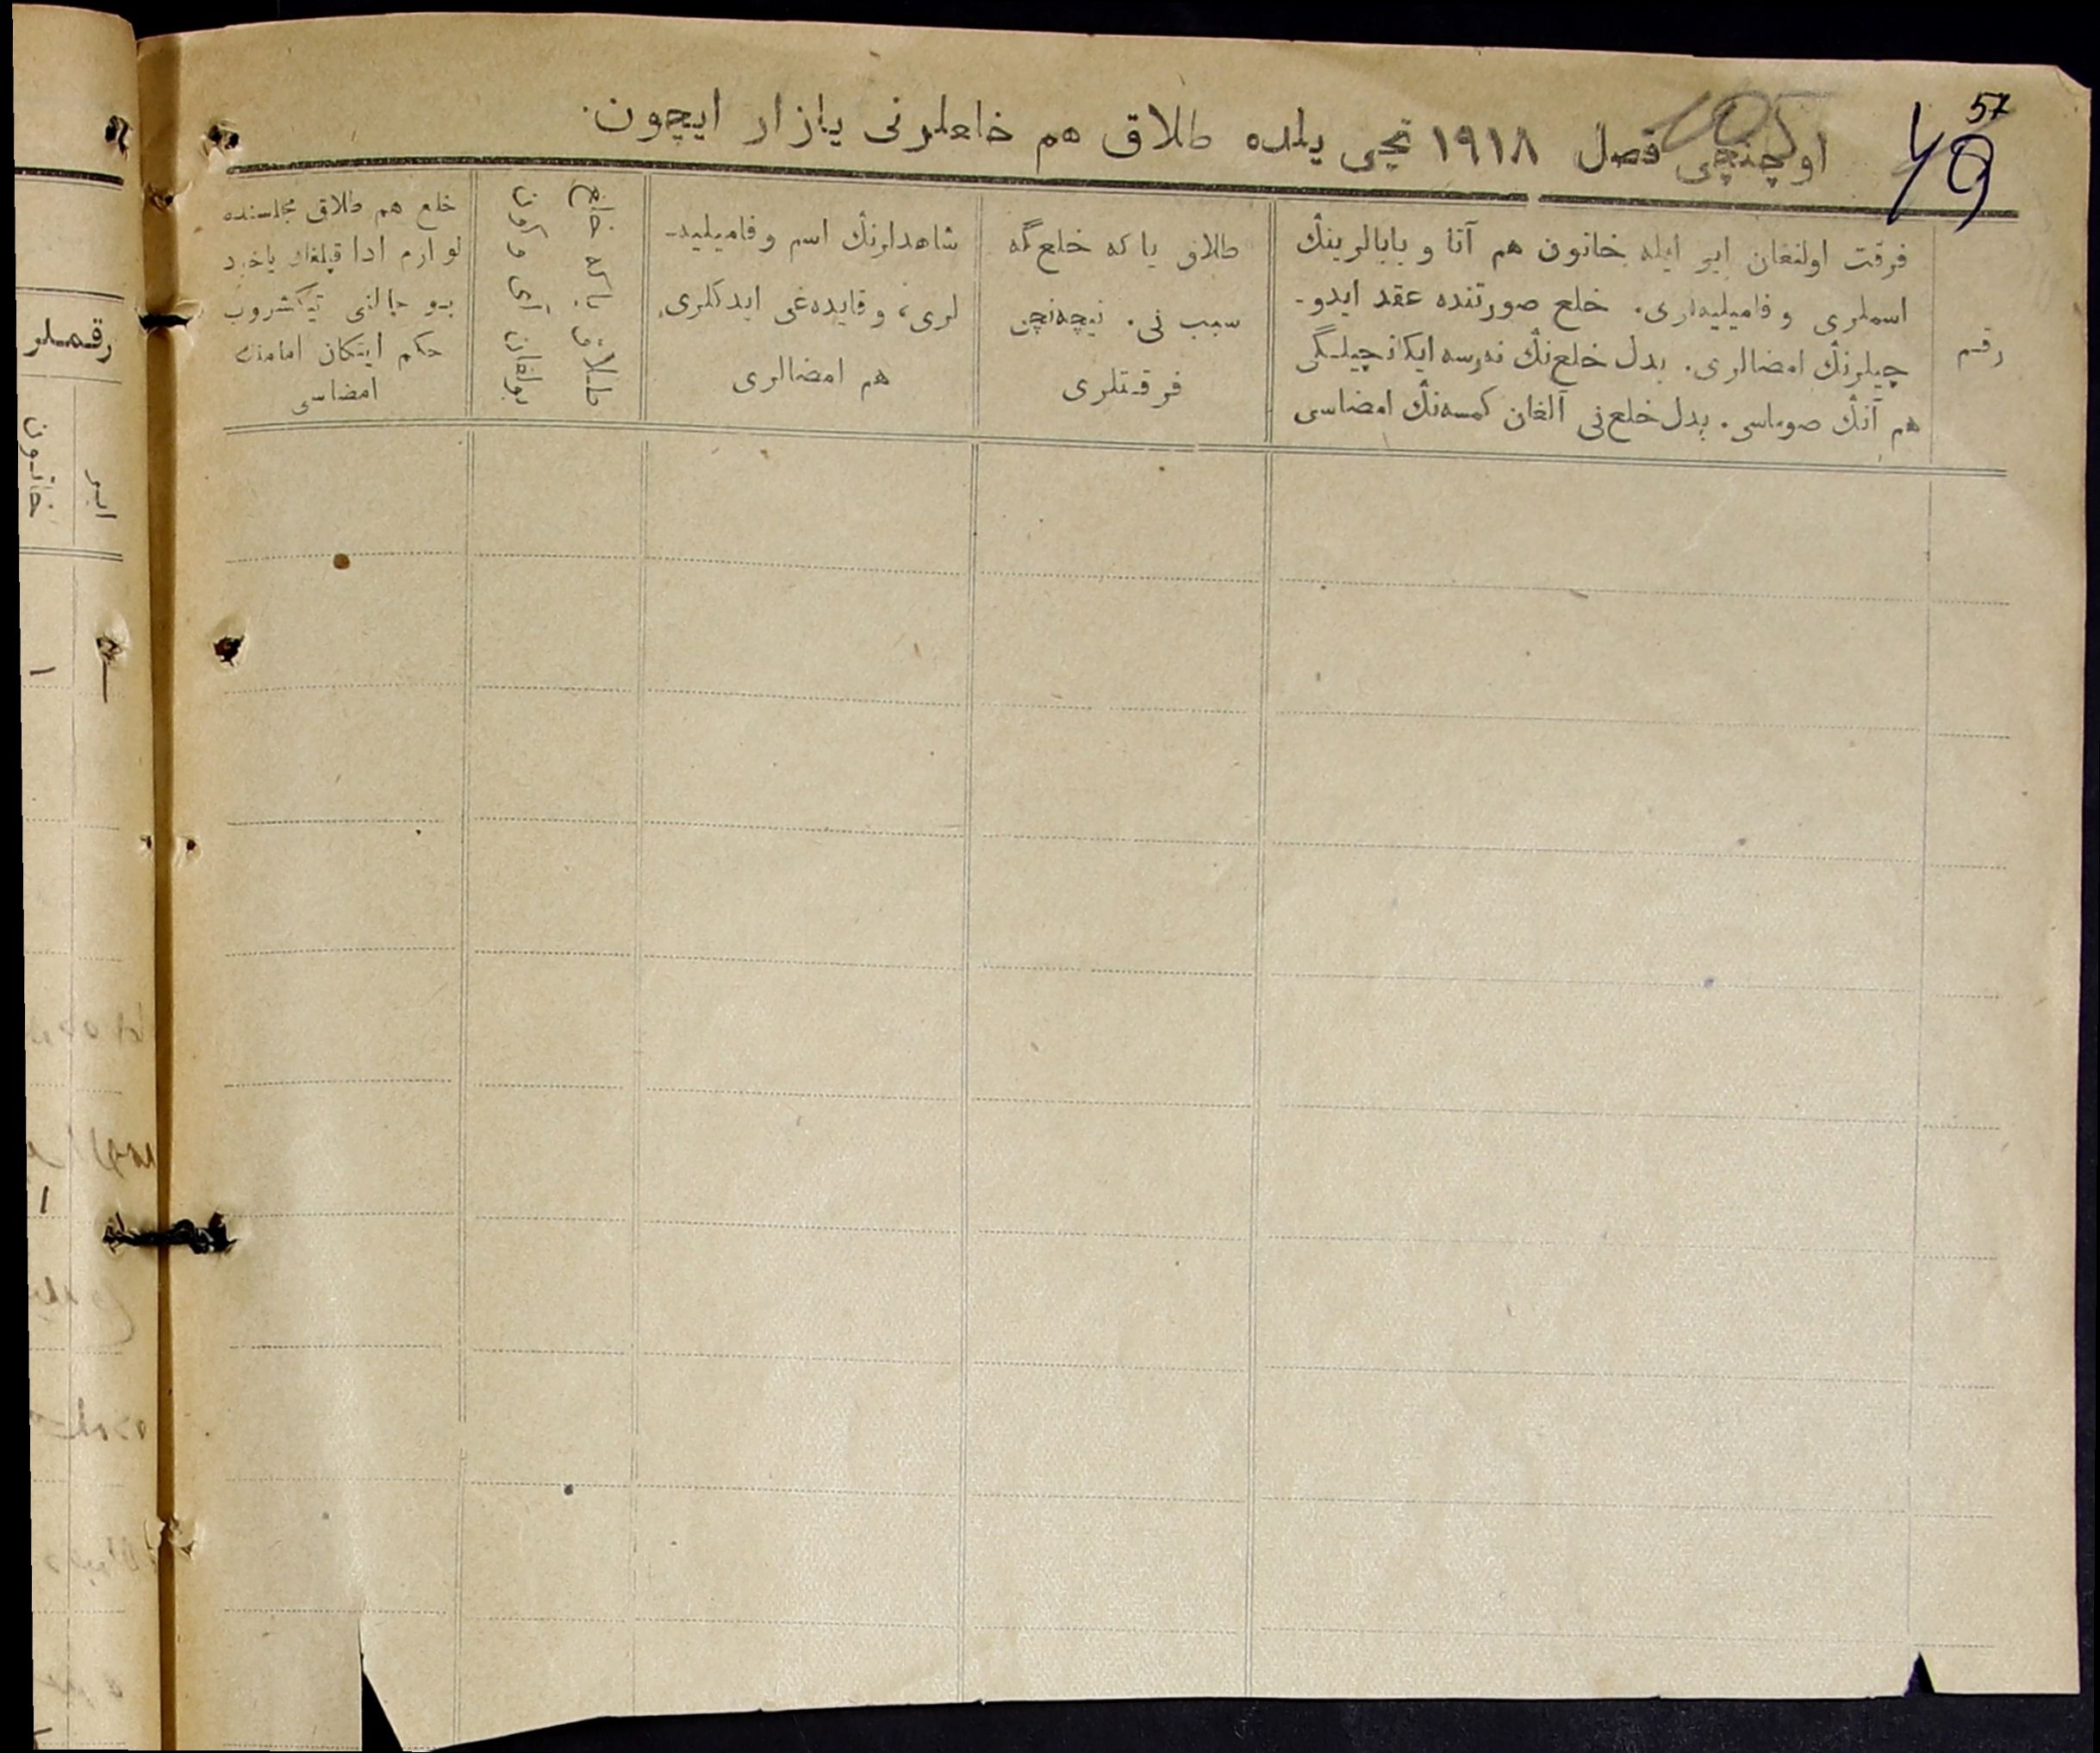 57
49
105
اوچنچی فصل ۱۹۱۸ نچی یلده طلاق هم خلعلرنی یازار ایچون.
رقم
فرقت اولنغان ایر ایله خاتون هم آتا و بابالرینڭ
اسملری و فامیلیه‌لری. خلع صورتنده عقد ایدو-
چیلرنڭ امضالری. بدل خلع‌نڭ نه‌رسه ایکانچیلگی
هم آنڭ صوماسی. بدل خلع‌نی آلغان کمسه‌نڭ امضاسی
طلاق یا که خلع‌گه
سبب نی. نیچه‌نچی
فرقتلری
شاهدلرنڭ اسم و فامیلیه-
لری، و قایده‌غی ایدکلری
هم امضالری
طلاق یا که خلع
بولغان آی و کون
خلع هم طلاق مجلسنده
لوازم ادا قیلغان یاخود
بو حالنی تیکشروب
حکم ایتکان امامنڭ
امضاسی
رقملر
ایر
خاتون
۱
۱